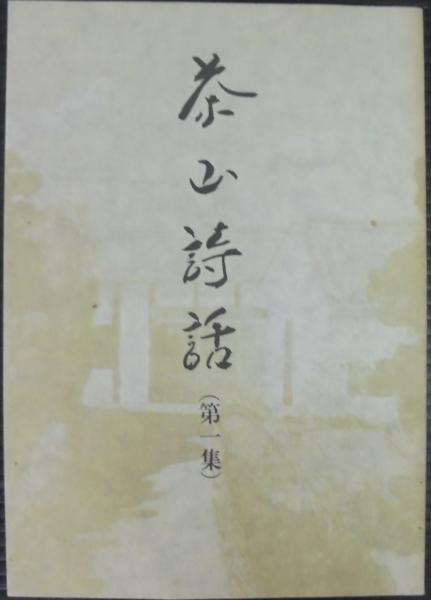 茶山詩話
(第一集)